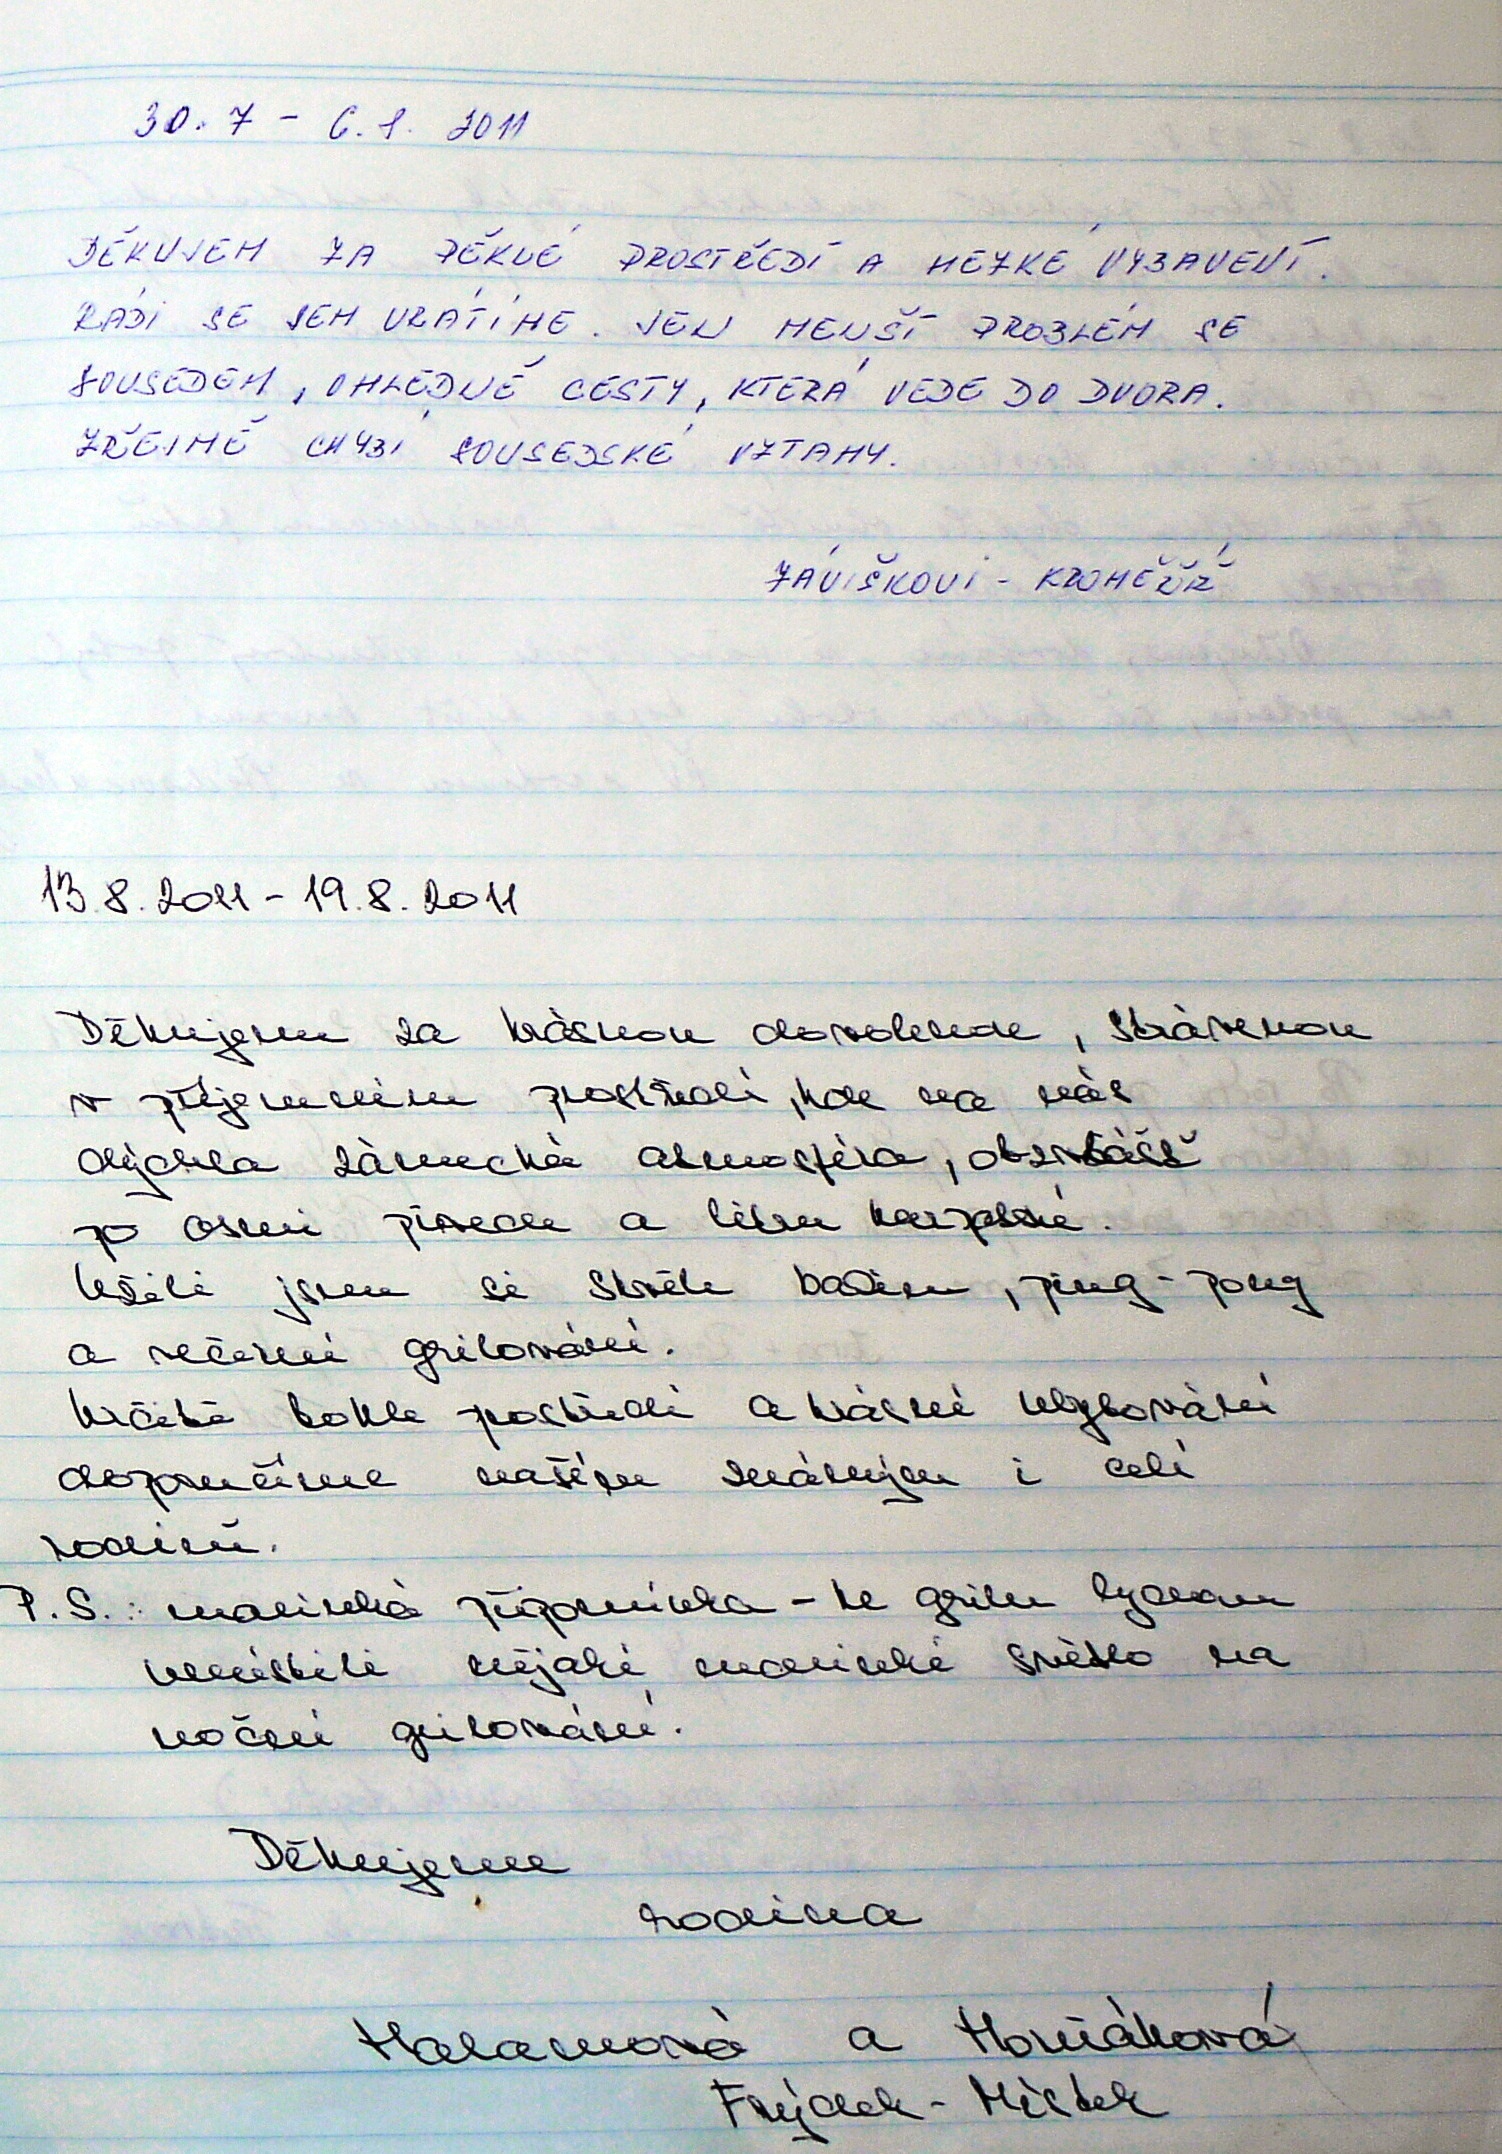 30. 7 - 6. 8. 2011
DĚKUJEM ZA PĚKNÉ PROSTŘEDÍ A HEZKÉ VYBAVENÍ.
RÁDI SE SEM VRÁTÍME. JEN MENŠÍ PROBLÉM SE
SOUSEDEM, OHLEDNĚ CESTY, KTERÁ VEDE DO DVORA.
ZŘEJMĚ CHYBÍ SOUSEDSKÉ VZTAHY.
ZÁVIŠKOVI - KROMĚŘÍŽ
13.8.2011 - 19.8.2011
Děkujem za krásnou dovolenou, strávenou
v příjemném prostředí, kde na nás
dýchla zámecká atmosféra, obzvlášť
po osmi pivech a litru
Užili jsem si skvěle bazén, ping-pong
a večerní grilování.
Určitě tohle prostředí a krásné ubytování
doporučíme našim známým i celé
rodině.
P.S.: malinká připomínka - ke grilu bychom
umístili nějaké malinké světlo na
noční grilování.
Děkujeme
rodina
Halamová a Horňáková
Frýdek - Místek